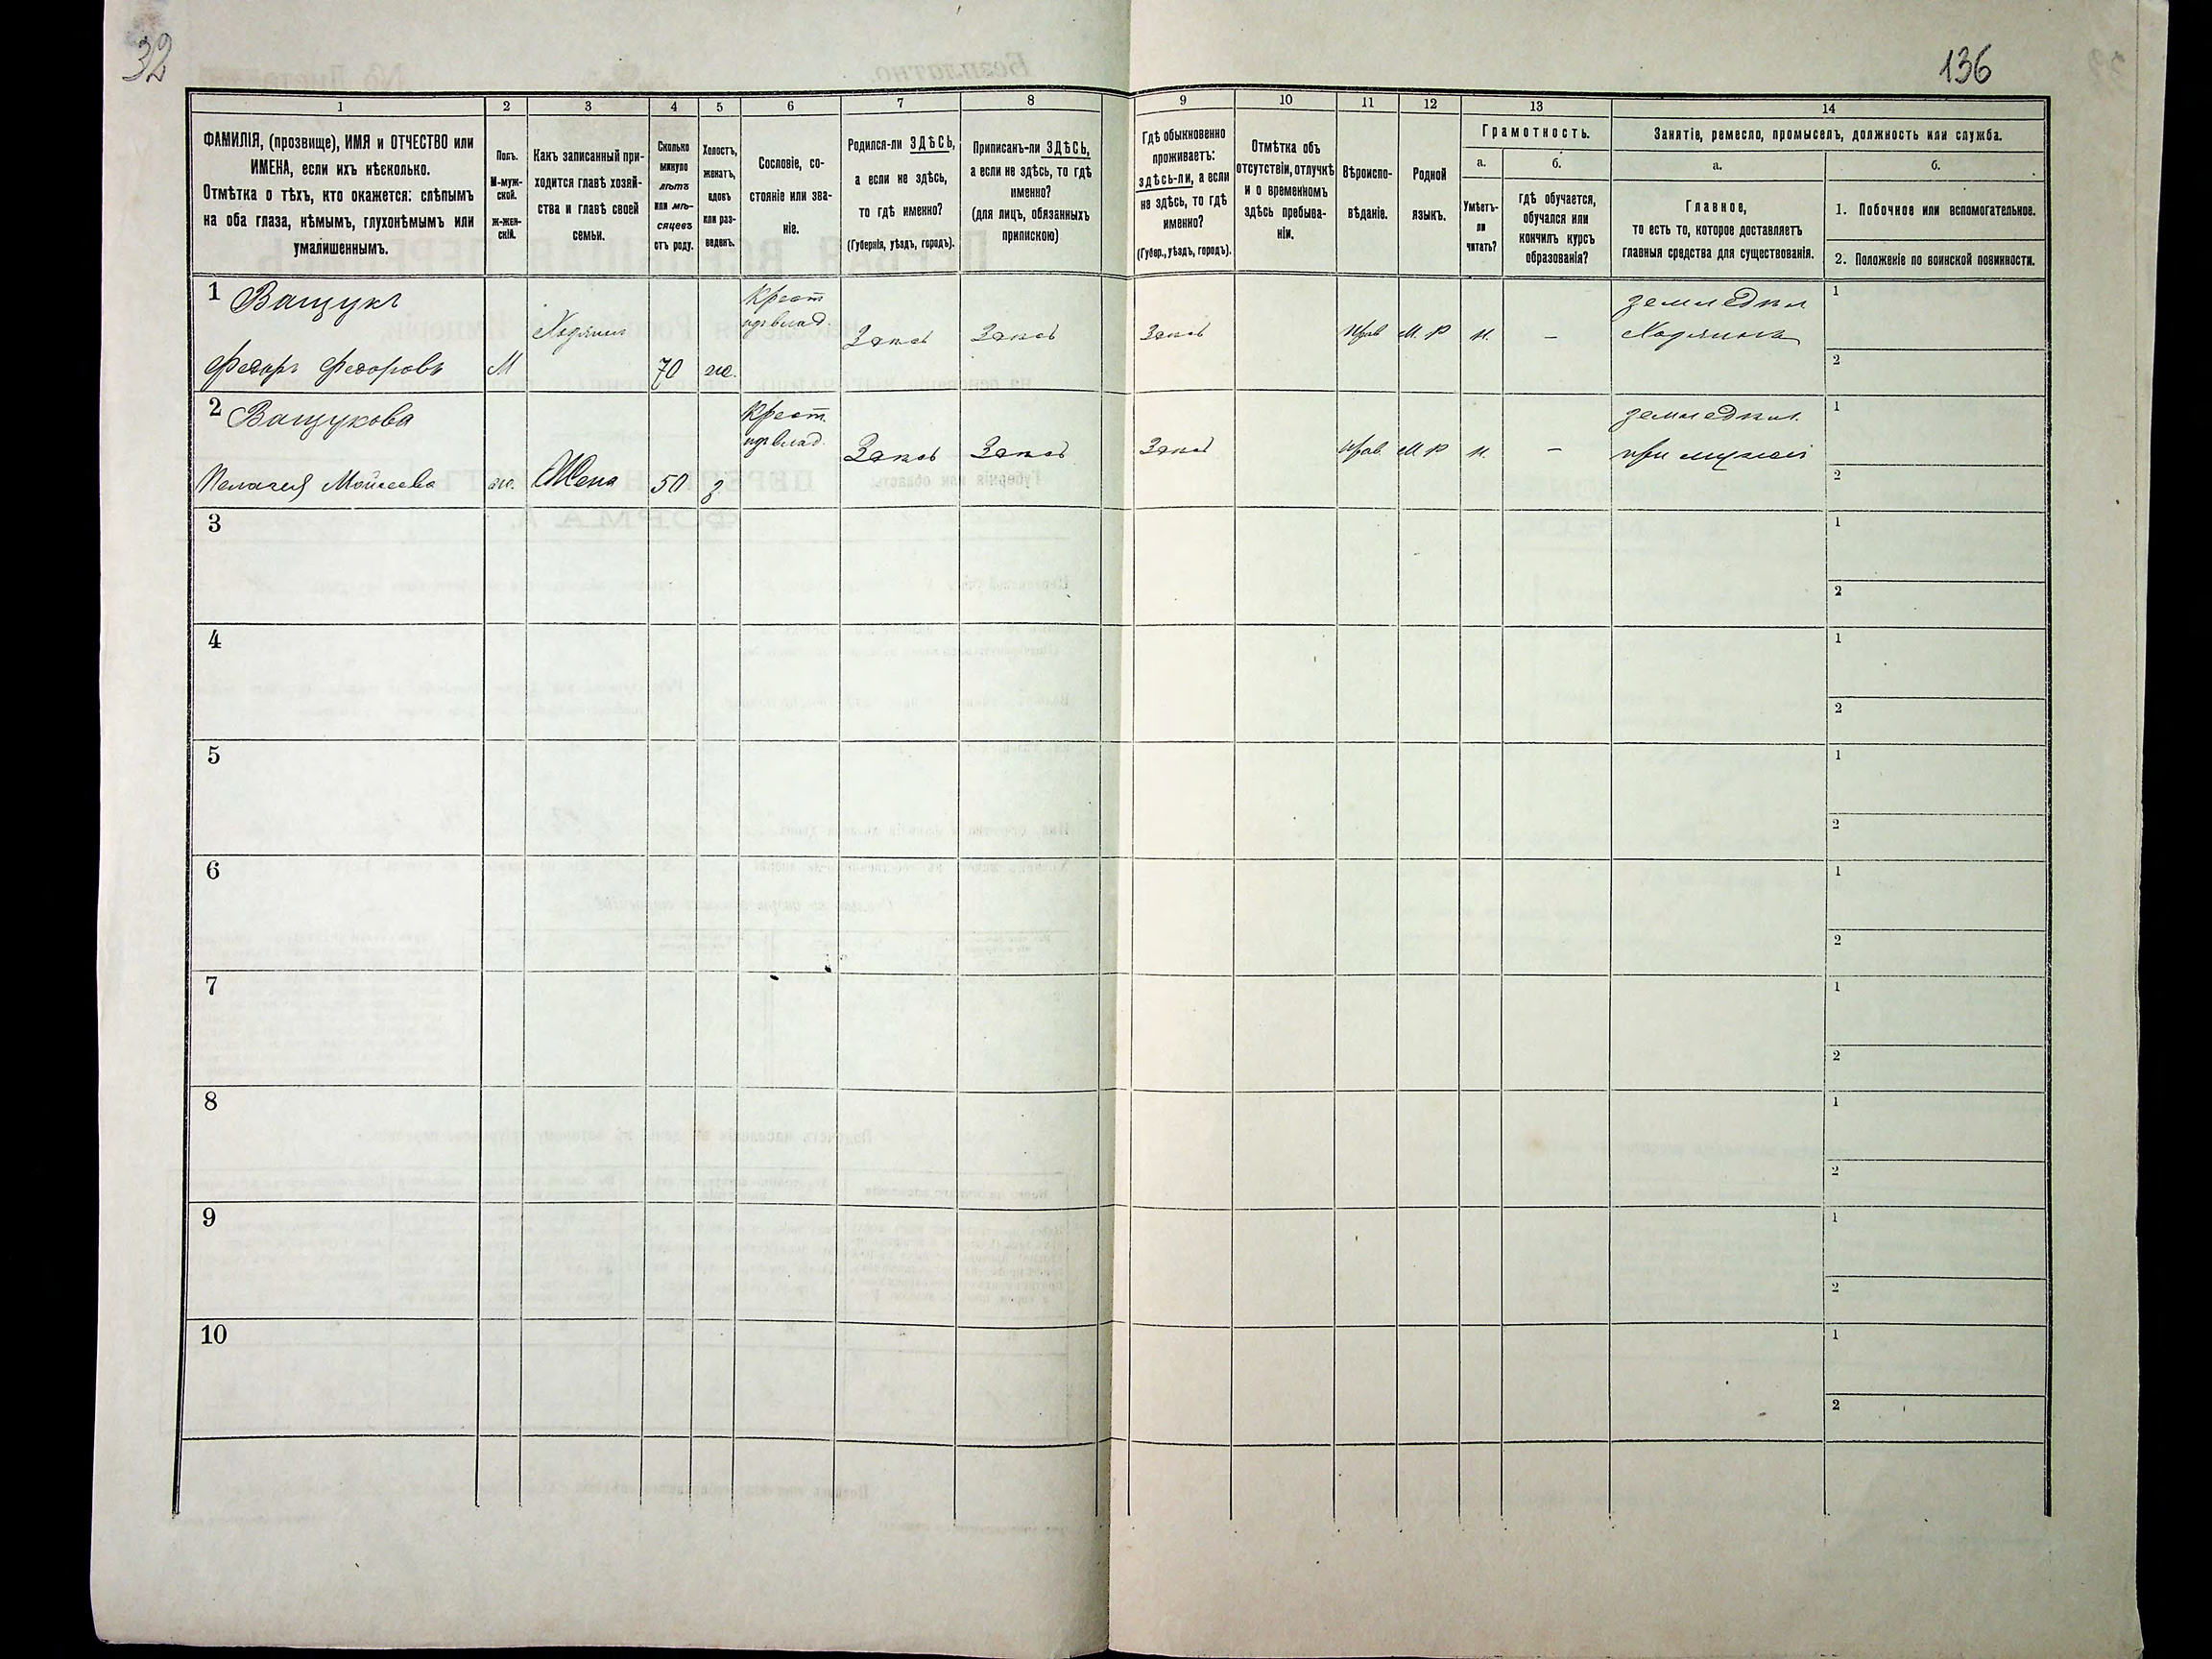 32
136
1
2
3
4
5
6
7
8
9
10
11
12
13
14
ФАМИЛІЯ, (прозвище), ИМЯ и ОТЧЕСТВО или
ИМЕНА, если ихъ нѣсколько.
Отмѣтка о тѣхъ, кто окажется: слѣпымъ
на оба глаза, нѣмымъ, глухонѣмымъ или
умалишеннымъ.
Полъ.
М-муж-
ской.
Ж-жен-
скій.
Какъ записанный при-
ходится главѣ хозяй-
ства и главѣ своей
семьи.
Сколько
минуло
лѣтъ
или мѣ-
сяцевъ
отъ роду.
Холостъ,
женатъ,
вдовъ
или раз-
веденъ.
Сословіе, со-
стояніе или зва-
ніе.
Родился-ли ЗДѢСЬ,
а если не здѣсь,
то гдѣ именно?
(Губернія, уѣздъ, городъ).
Приписанъ-ли ЗДѢСЬ,
а если не здѣсь, то гдѣ
именно?
(для лицъ, обязанныхъ
припискою)
Гдѣ обыкновенно
проживаетъ:
здѣсь-ли, а если
не здѣсь, то гдѣ
именно?
(Губер., уѣздъ, городъ).
Отмѣтка объ
отсутствіи, отлучкѣ
и о временномъ
здѣсь пребыва-
ніи.
Вѣроиспо-
вѣданіе.
Родной
языкъ.
Грамотность.
а.
Умѣетъ-
ли
читать?
б.
гдѣ обучается,
обучался или
кончилъ курсъ
образованія?
Занятіе, ремесло, промыселъ, должность или служба.
а.
Главное,
то есть то, которое доставляетъ
главныя средства для существованія.
б.
1. Побочное или вспомогательное.
2. Положеніе по воинской повинности.
1 Ващукъ
Федоръ Федоровъ
М
Хозяинъ
70
ж.
Крест
изъ влад
Здѣсь
Здѣсь
Здѣсь
Прав
М. Р
н.
–
земледѣл
Хозяинъ
1
2
2 Ващукова
Пелагея Мойсеева
ж.
Жена
50
з
Крест.
изъ влад.
Здѣсь
Здѣсь
Здѣсь
Прав.
М Р
н.
–
земледѣл.
при мужѣ
1
2
3
1
2
4
1
2
5
1
2
6
1
2
7
1
2
8
1
2
9
1
2
10
1
2